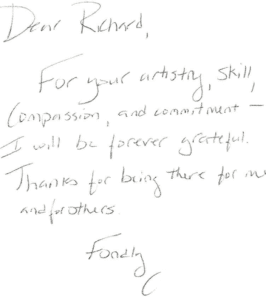 Dear Richard,
For your artistry, skill,
Compassion, and commitment —
I will be forever grateful.
Thanks for being there for me
and for others
Fondly
C